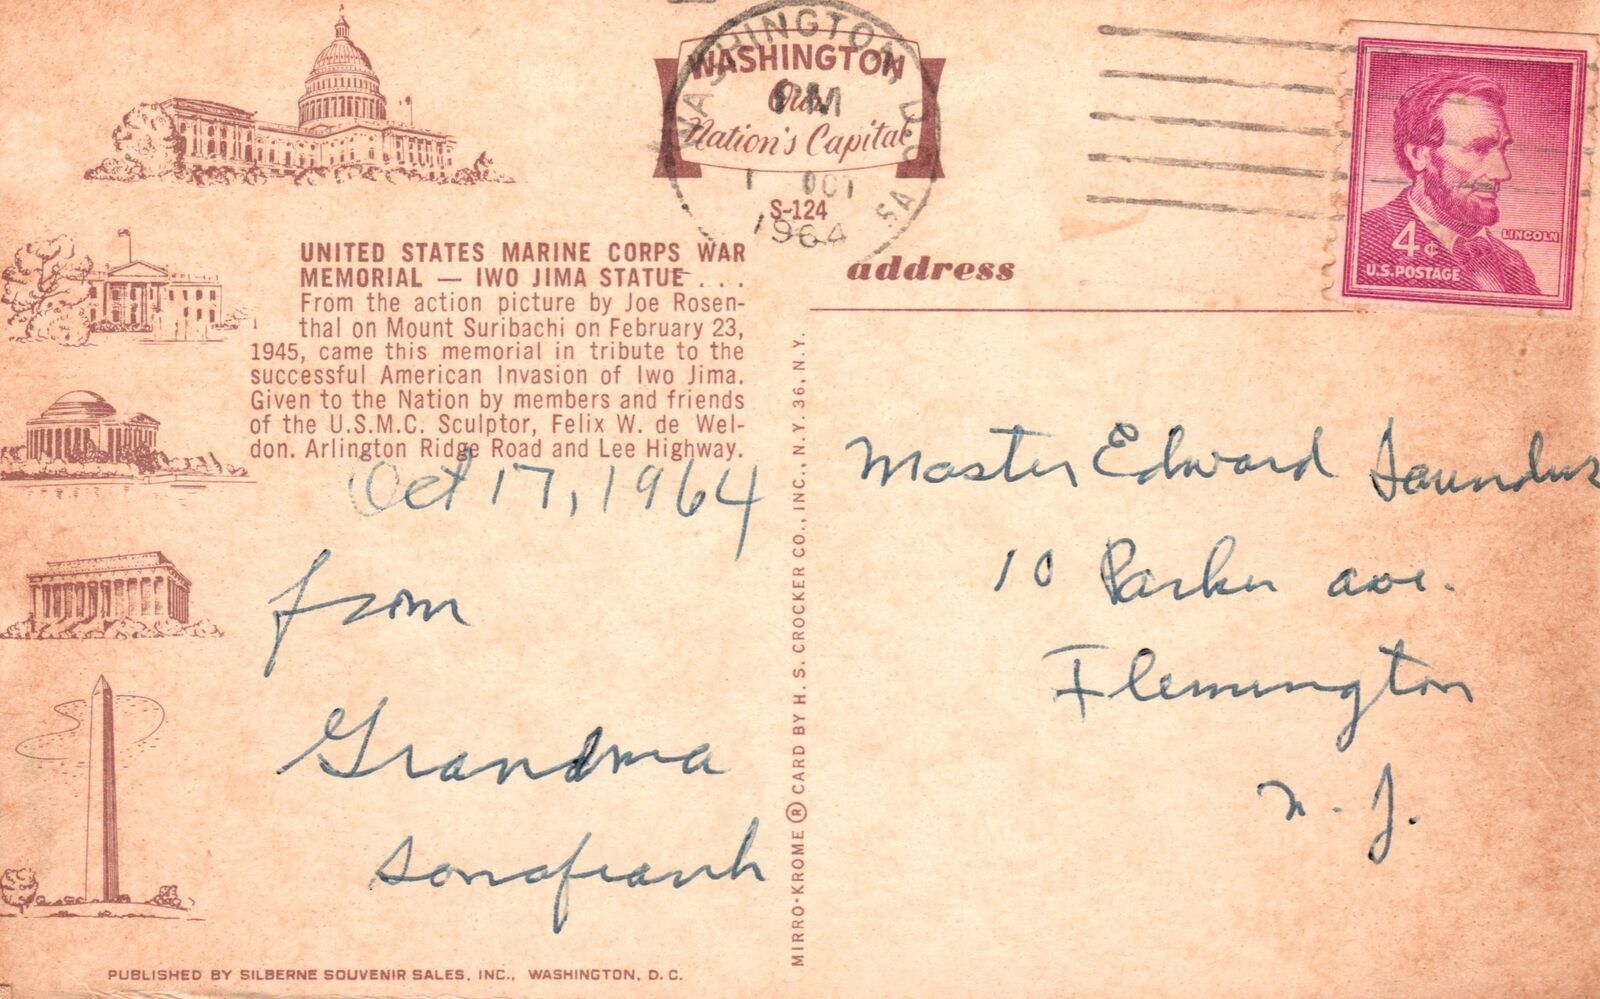 WASHINGTON, D.C.
PM
OCT
1964
WASHINGTON
Our
Nation's Capital
S-124
LINCOLN
4¢
U.S. POSTAGE
UNITED STATES MARINE CORPS WAR
MEMORIAL — IWO JIMA STATUE . . .
From the action picture by Joe Rosen-
thal on Mount Suribachi on February 23,
1945, came this memorial in tribute to the
successful American Invasion of Iwo Jima.
Given to the Nation by members and friends
of the U.S.M.C. Sculptor, Felix W. de Wel-
don. Arlington Ridge Road and Lee Highway.
Oct 17, 1964
from
Grandma
address
Master Edward Saunders
10 Parker ave.
Flemington
N. J.
MIRRO-KROME ® CARD BY H. S. CROCKER CO., INC., N.Y. 36, N.Y.
PUBLISHED BY SILBERNE SOUVENIR SALES, INC., WASHINGTON, D. C.